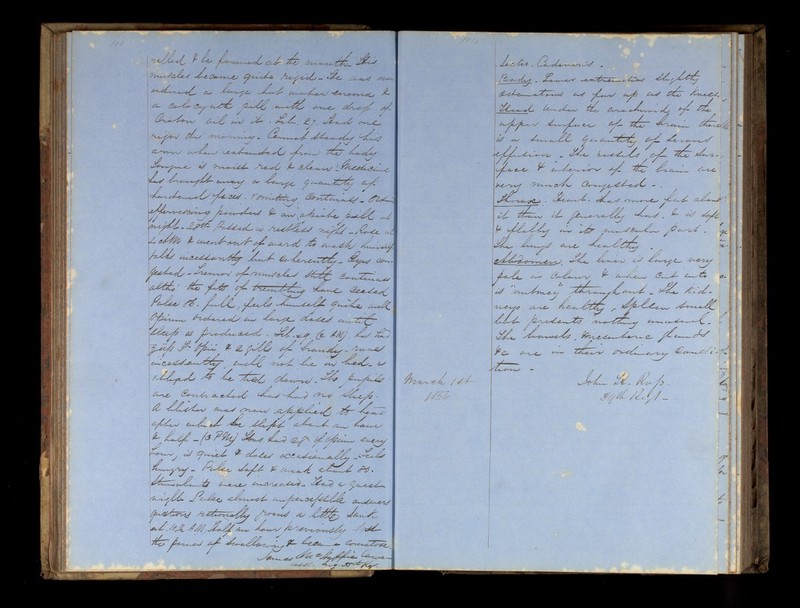 rolled & he foamed at the mouth. His
muscles became quite rigid - He was
ordered a large hot water enema &
a colocynth pill with one drop of
Croton oil in it. Feb. 27 Had one
rigor this morning. Cannot steady his
arm when extended from the body
Tongue is moist red & clean. Medicine
has brought away a large quantity of
hardened faeces. Vomiting continues -
effervescing powders & an opiate pill at
night - 28th Passed a restless night - Rose at
4 AM & went out of ward to wash himself
talks incessantly but coherently - Eyes
gested - Tremor of muscles still continues
altho' the fits of trembling have ceased
Pulse full feels himself quite well
Opium ordered in large doses until
sleep is produced. Feb. 29 has had
Opii & 2 gills of Brandy - raves
incessantly will not lie in bed - is
obliged to be tied down. The pupils
are contracted has had no sleep.
A blister was now applied to head
after which he slept about an hour
& half - (3 PM) Has had of opium every
hour, is quiet & dozes occasionally. Feels
hungry - Pulse soft & weak about
Stimulants were increased - Had a quiet
night. Pulse almost imperceptible answers
questions rationally
at AM. Half an hour previously lost
the power of swallowing & became comatose
James
March 1st
1856
Sectio Cadaveris.
Body. Lower extremities slightly
oedematous as far up as the knees.
Head Under the arachnoid of the
upper surface of the brain there
is a small quantity of serous
effusion. The vessels of the sur-
face & interior of the brain are
very much congested.
Thorax. Heart has more fat about
it than it generally has. & is soft
& flabby in its muscular part.
The lungs are healthy.
Abdomen. The liver is large very
pale in colour, & when cut into
is "nutmeg" throughout. The kid-
neys are healthy. Spleen small
but presents nothing unusual.
The bowels, mesenteric glands
&c are in their ordinary condi-
tion -
John
Regt -